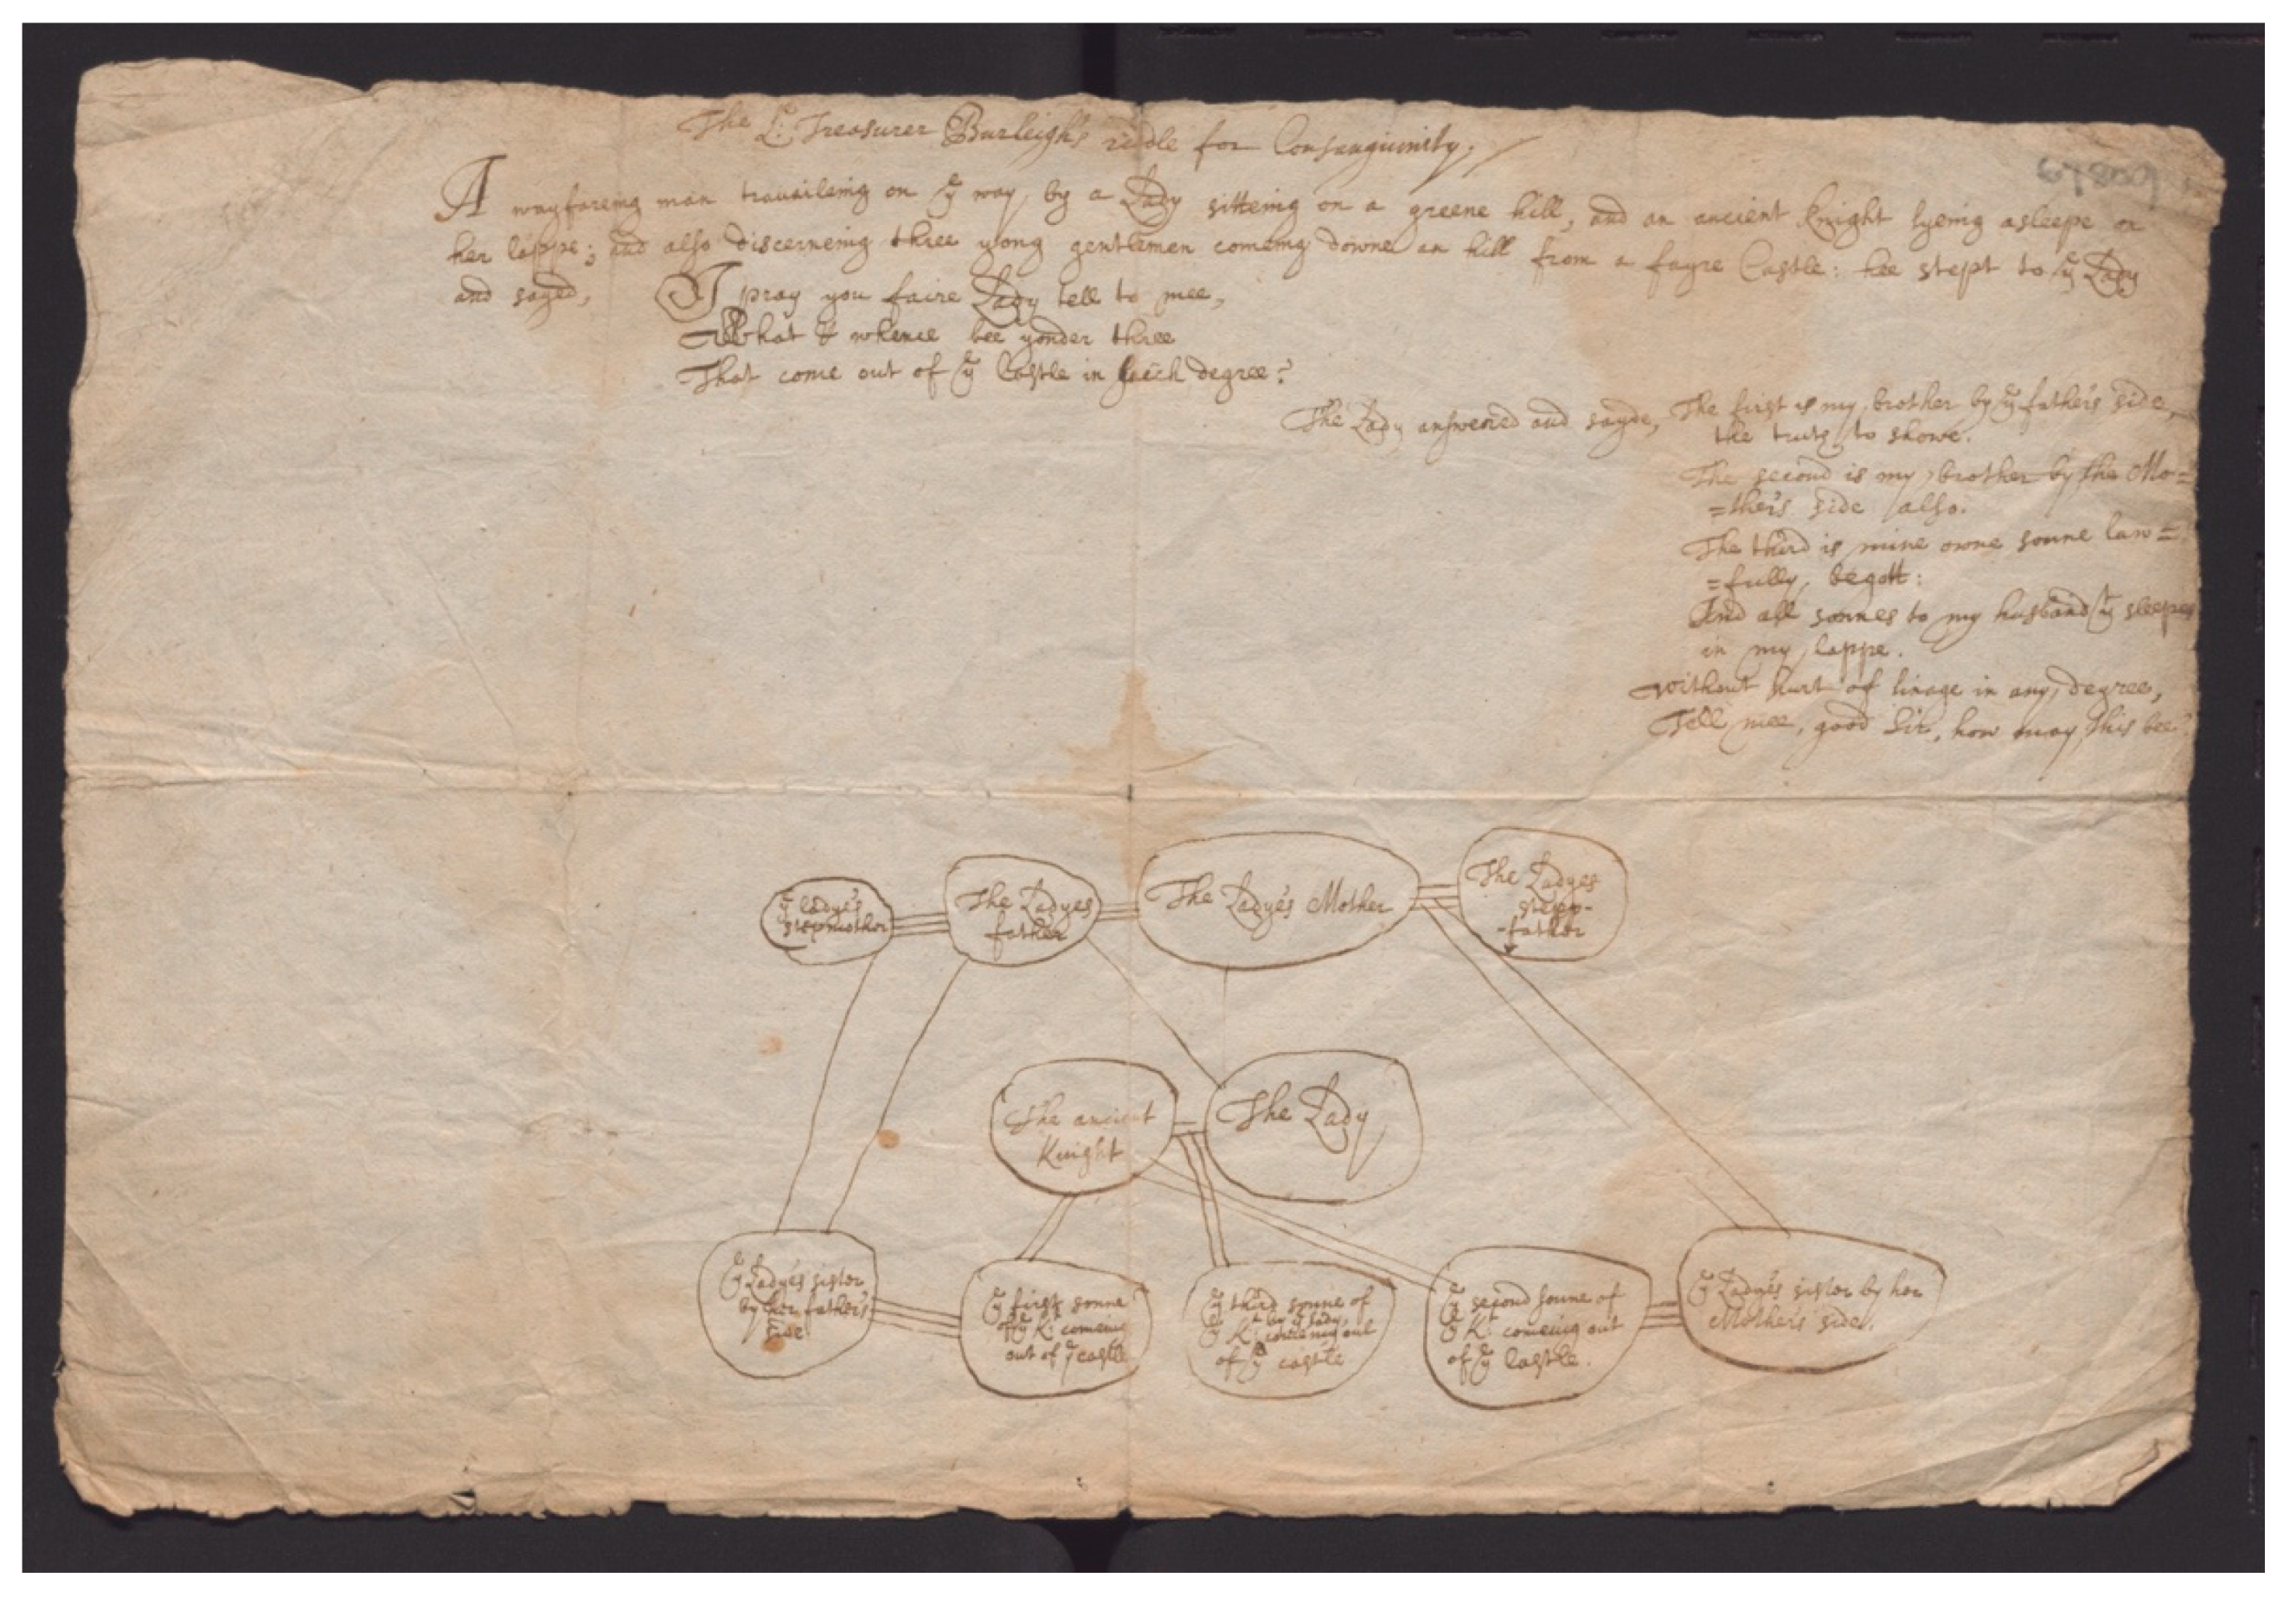 The L: Treasurer Burleigh's ridle for Consanguinity.
67809
A wayfareing man travaileing on yͤ way, by a Lady sitteing on a greene hill, and an ancient Knight lyeing asleepe on
her lappe; and also discerneing three yong gentlemen comeing downe an hill from a fayre Castle: hee stept to yͤ Lady
and sayed,
I pray you faire Lady tell to mee,
What & whence bee yonder three
That come out of yͤ Castle in each degree?
The Lady answered and sayde, The first is my brother by yͤ father's side,
the truth to showe.
The second is my brother by the Mo=
=ther's side also.
The third is mine owne sonne law=
=fully begott:
And all sonnes to my husband yͭ sleepes
in my lappe.
Without hurt of linage in any degree,
Tell mee, good Sir, how may this bee?
yͤ ladye's
stepmother
The Ladyes
father
The Ladye's Mother
The Ladyes
stepp-
-father
The ancient
Knight
The Lady
yͤ Ladye's sister
by her father's
side
yͤ first sonne
of yͤ K: comeing
out of yͤ castle
yͤ third sonne of
by yͤ lady
yͤ K: comeing out
of yͤ castle
yͤ second sonne of
yͤ K: comeing out
of yͤ Castle.
yͤ Ladye's sister by her
Mother's side.